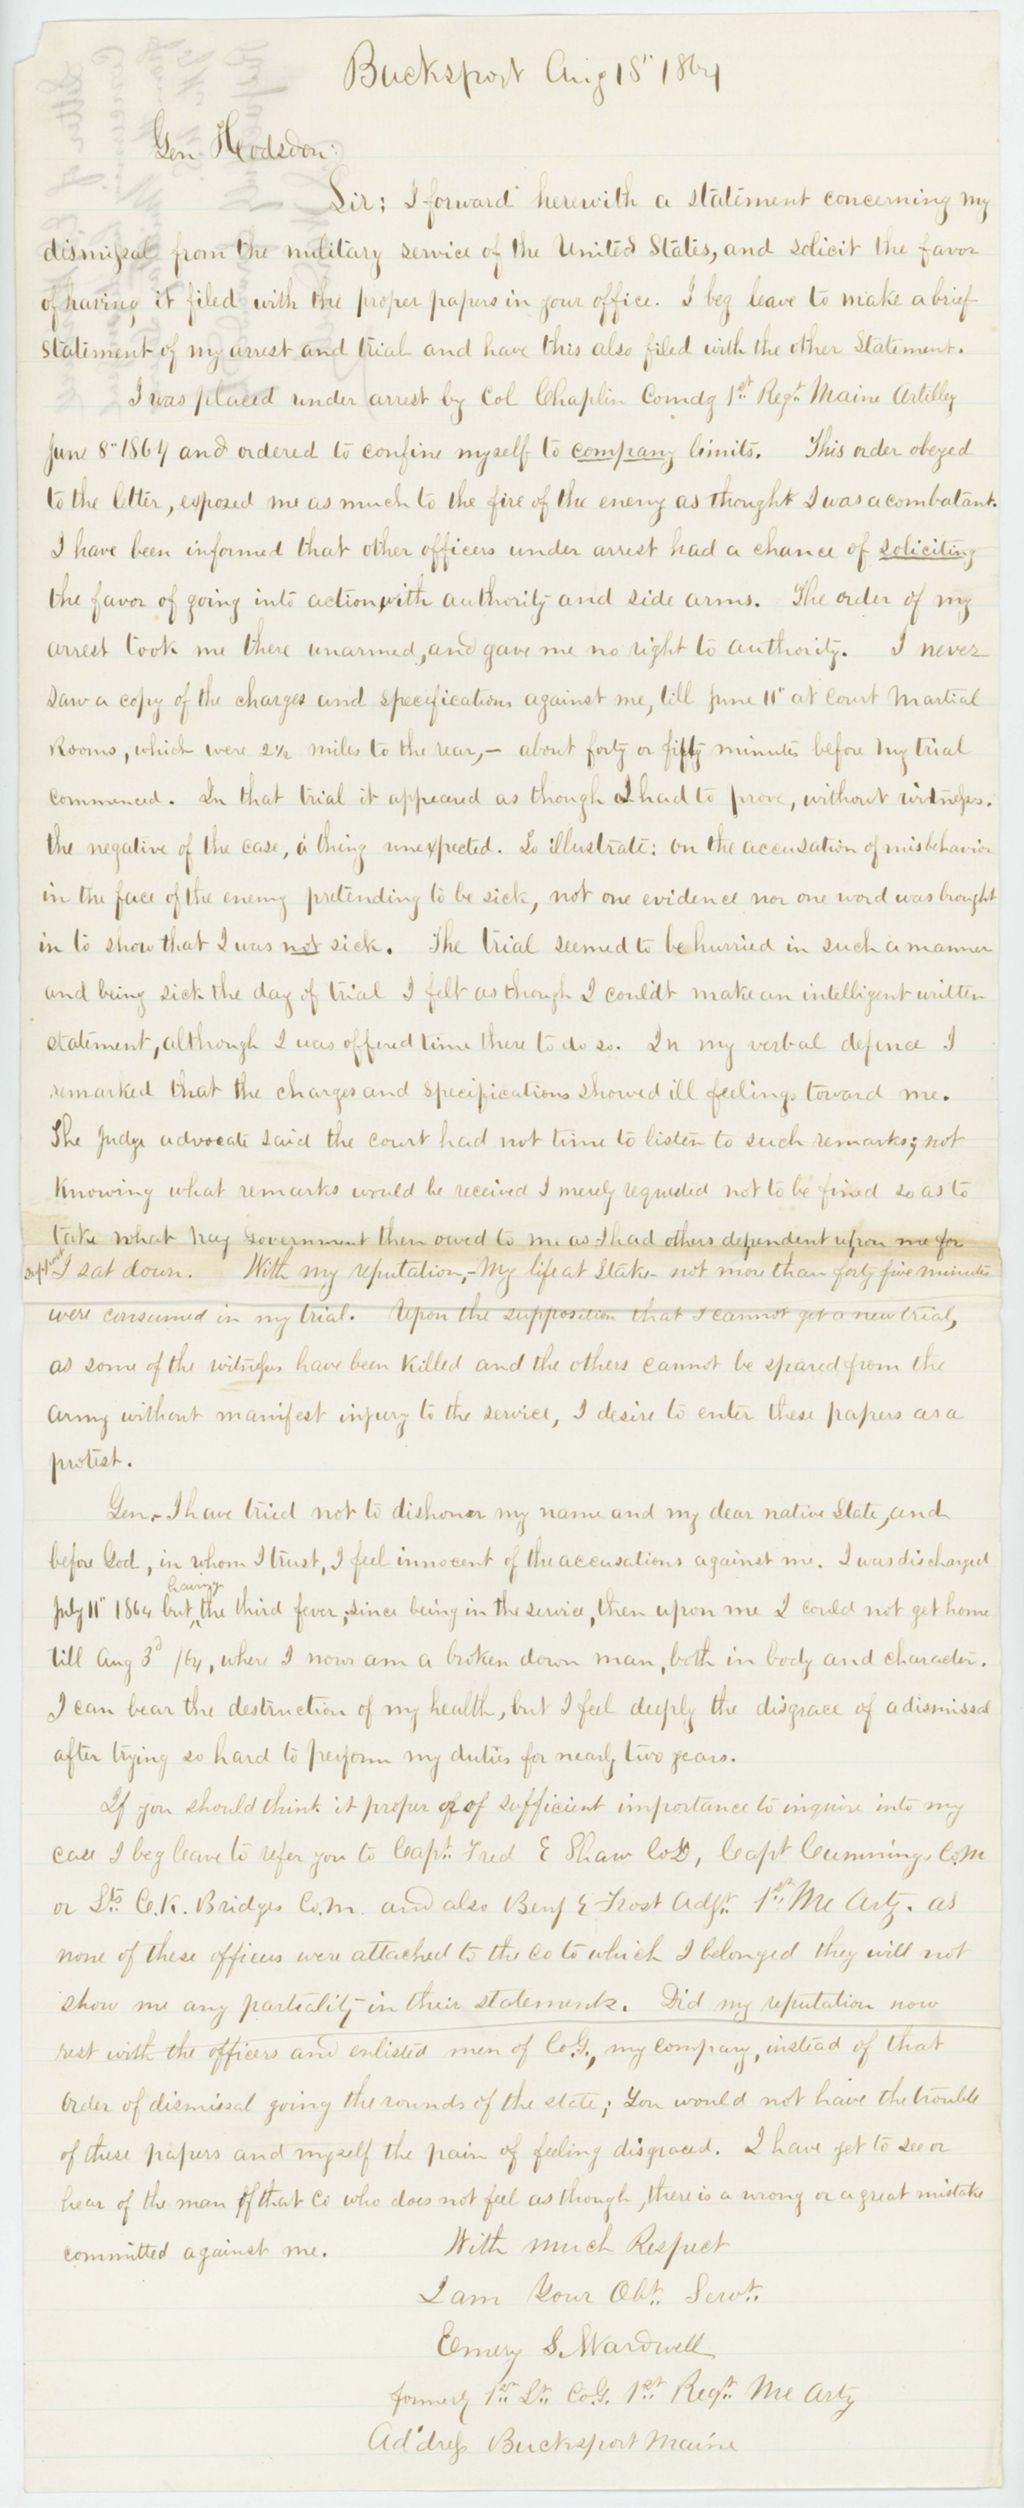 Bucksport Aug 18" 1864
Gen. Hodsdon:
Sir; I forward herewith a statement concerning my
dismissal from the military service of the United States, and solicit the favor
of having it filed with the proper papers in your office. I beg leave to make a brief
statement of my arrest and trial and have this also filed with the other statement.
I was placed under arrest by Col Chaplin Comdg 1st Regt Maine Artilley
June 8" 1864 and ordered to confine myself to company limits. This order obeyed
to the letter, exposed me as much to the fire of the enemy as thought I was a combatant.
I have been informed that other officers under arrest had a chance of soliciting
the favor of going into action, with authority and side arms. The order of my
arrest took me there unarmed, and gave me no right to authority. I never
saw a copy of the charges and specifications against me, till June 11" at Court Martial
Rooms, which were 2½ miles to the rear, – about forty or fifty minutes before my trial
commenced. In that trial it appeared as though I had to prove, without witness,
the negative of the case, a thing unexpected. To illustrate: on the accusation of misbehavior
in the face of the enemy pretending to be sick, not one evidence nor one word was brought
in to show that I was not sick. The trial seemed to be hurried in such a manner
and being sick the day of trial I felt as though I could't make an intelligent written
statement, although I was offered time there to do so. In my verbal defence I
remarked that the charges and specifications showed ill feelings toward me.
The Judge advocate said the court had not time to listen to such remarks; not
knowing what remarks would be received I merely requested not to be fined so as to
take what pay government then owed to me as I had others dependent upon me for
support I sat down. With my reputation, – My life at stake – not more than forty five minutes
were consumed in my trial. Upon the supposition that I cannot get a new trial,
as some of the witnesses have been killed and the others cannot be spared from the
army without manifest injury to the service, I desire to enter these papers as a
protest.
Gen. – I have tried not to dishonor my name and my dear native State, and
before God, in whom I trust, I feel innocent of the accusations against me. I was discharged
July 11" 1864 but having the third fever, since being in the service, then upon me I could not get home
till Aug 3d /64, where I now am a broken down man, both in body and character.
I can bear the destruction of my health, but I feel deeply the disgrace of a dismissal
after trying so hard to perform my duties for nearly two years.
If you should think it proper of of sufficient importance to inquire into my
case I beg leave to refer you to Capt. Fred E Shaw Co D, Capt Cummings Co. M
or Lts C. K. Bridges Co. M. and also Benj E Frost Adjt. 1st Me Arty. as
none of these officers were attached to the Co to which I belonged they will not
show me any partiality in their statements. Did my reputation now
rest with the officers and enlisted men of Co. G., my company, instead of that
order of dismissal going the rounds of the state; you would not have the trouble
of these papers and myself the pain of feeling disgraced. I have yet to see or
hear of the man of that Co who does not feel as though, there is a wrong or a great mistake
committed against me. With much Respect
I am Your Obt. Servt.
Emery S. Wardwell
formerly 1st Lt. Co. G. 1st Regt. Me Arty
Address Bucksport Maine